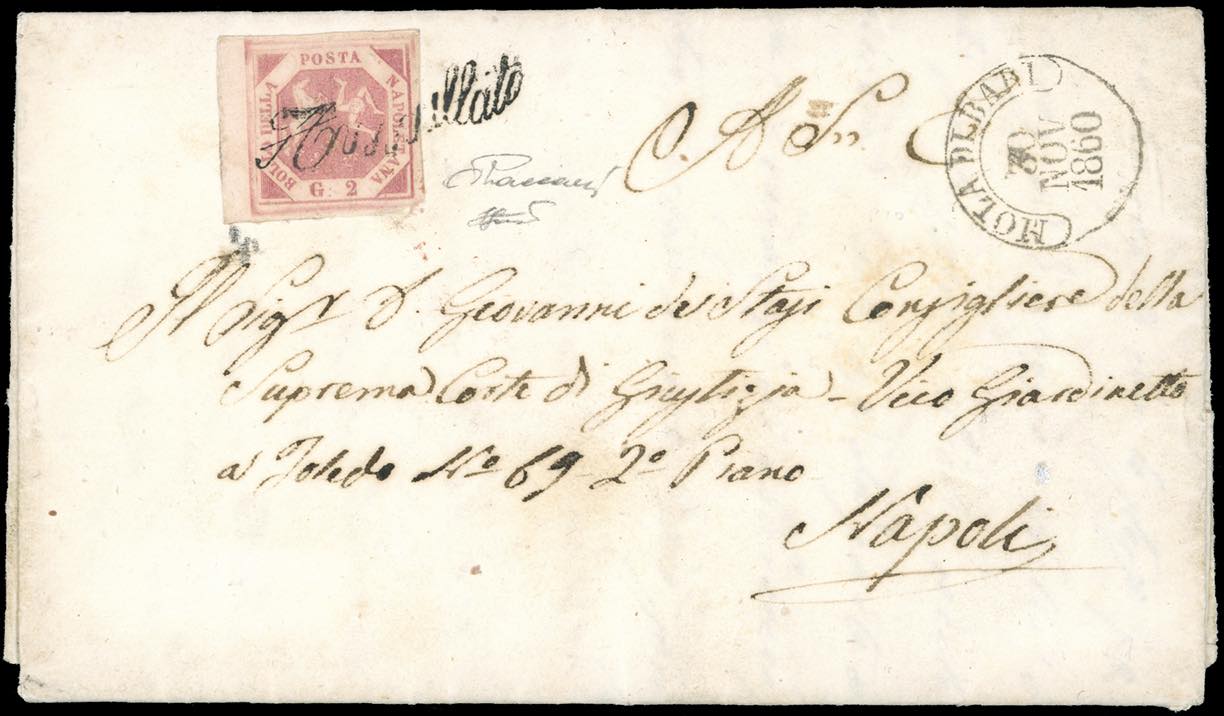 POSTA NAPOLETANA
BOLLO DELLA
G. 2
Annullato
A S. E.
MOLA DI BARI
30
NOV
1860
Il Sigr D. Giovanni de Stasi Consigliere della
Suprema Corte di Giustizia - Vico Giardinetto
a Toledo No 69 2o Piano
Napoli